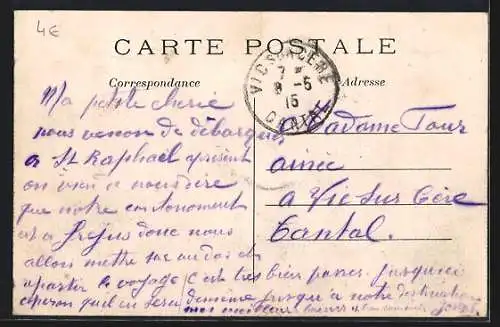 4€
CARTE POSTALE
Correspondance
Adresse
VIC SUR CERE
7
8 -5
15
CANTAL
Ma petite cherie
nous venon de débarquer
a St Raphael apresent
on vien de nous dire
que notre cantonement
et a Frejus donc nous
allons mettre sac au dos et
apartir le voyage c'est tres bien passer jusqu'ici
esperon quil en sera de meme jusqu'a notre destination
mes meilleurs baisers
Madame Tour
ainée
a Vic sur Cère
Cantal.